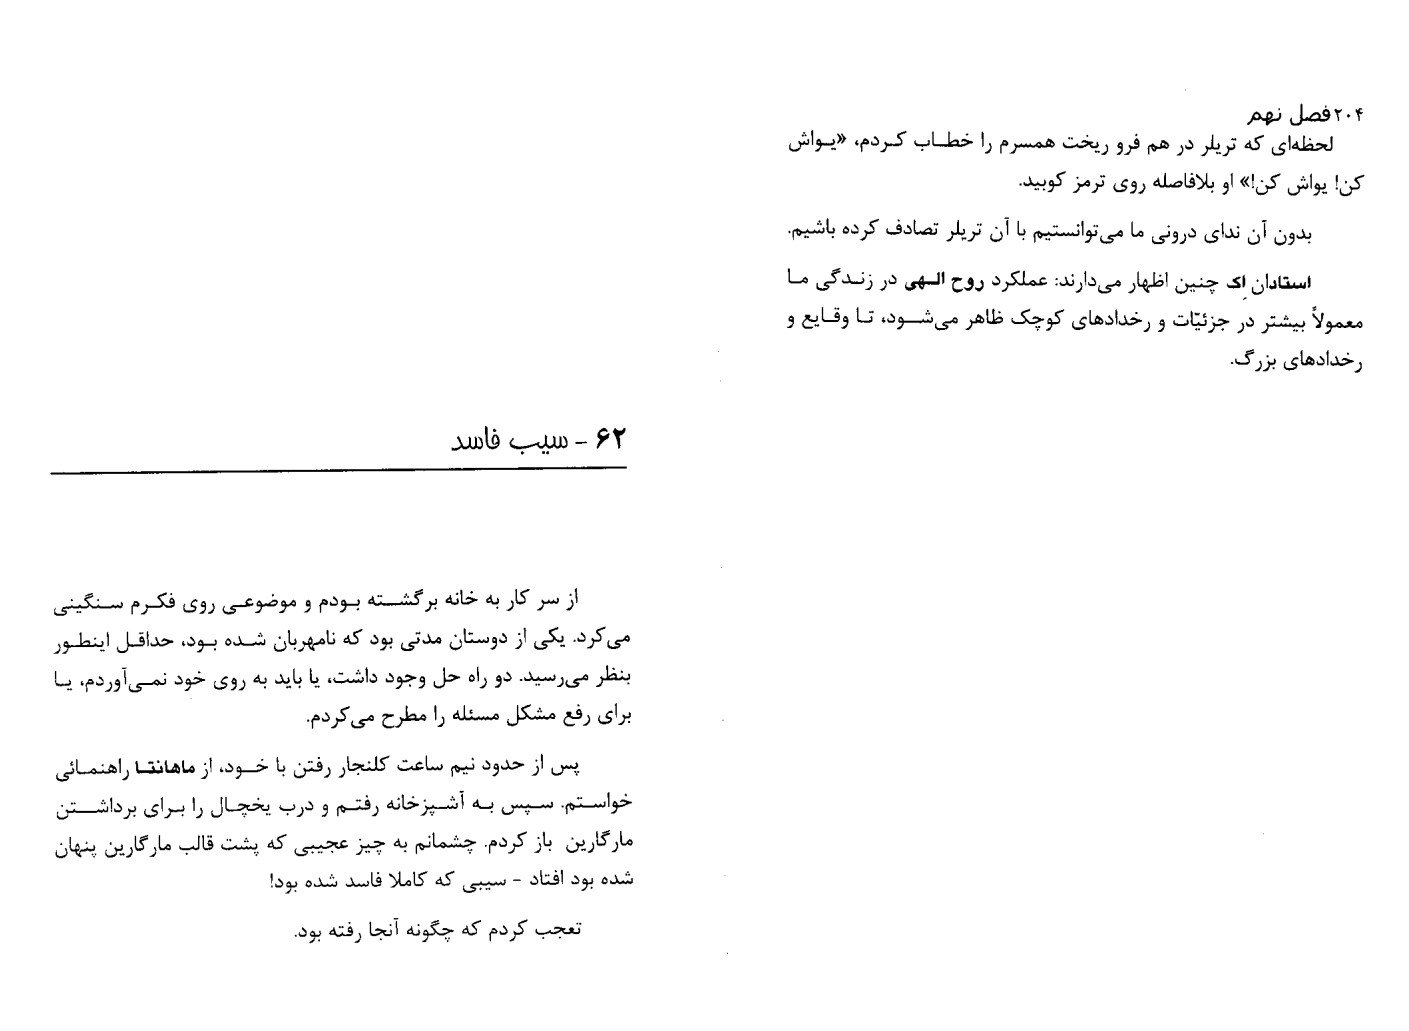 ۲۰۴ فصل نهم
لحظه‌ای که تریلر در هم فرو ریخت همسرم را خطاب کردم، «یواش
کن! یواش کن!» او بلافاصله روی ترمز کوبید.
بدون آن ندای درونی ما می‌توانستیم با آن تریلر تصادف کرده باشیم.
استادان اِک چنین اظهار می‌دارند: عملکرد روح الهی در زندگی ما
معمولاً بیشتر در جزئیّات و رخدادهای کوچک ظاهر می‌شود، تا وقایع و
رخدادهای بزرگ.
۶۲ - سیب فاسد
از سر کار به خانه برگشته بودم و موضوعی روی فکرم سنگینی
می‌کرد. یکی از دوستان مدتی بود که نامهربان شده بود، حداقل اینطور
بنظر می‌رسید. دو راه حل وجود داشت، یا باید به روی خود نمی‌آوردم، یا
برای رفع مشکل مسئله را مطرح می‌کردم.
پس از حدود نیم ساعت کلنجار رفتن با خود، از ماهانتا راهنمائی
خواستم. سپس به آشپزخانه رفتم و درب یخچال را برای برداشتن
مارگارین باز کردم. چشمانم به چیز عجیبی که پشت قالب مارگارین پنهان
شده بود افتاد - سیبی که کاملا فاسد شده بود!
تعجب کردم که چگونه آنجا رفته بود.